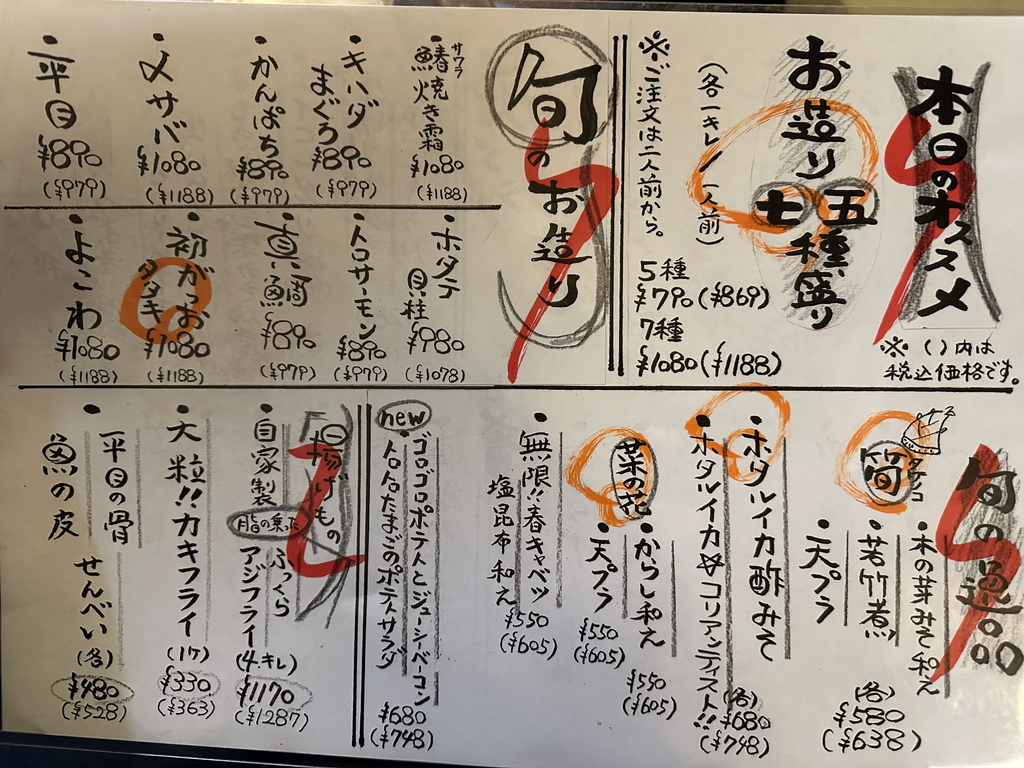 本日のオススメ
※ ( )内は
税込価格です。
お造り五種盛り
七
(各一キレ/一人前)
※ご注文は二人前から。
5種
¥790(¥869)
7種
¥1080(¥1188)
旬のお造り
・鰆焼き霜
サワラ
¥1080
(¥1188)
・キハダ
まぐろ
¥890
(¥979)
・かんぱち
¥890
(¥979)
・〆サバ
¥1080
(¥1188)
・平目
¥890
(¥979)
・ホタテ
貝柱
¥980
(¥1078)
・トロサーモン
¥890
(¥979)
・真鯛
¥890
(¥979)
・初がつお
タタキ
¥1080
(¥1188)
・よこわ
¥1080
(¥1188)
旬の
筍
タケノコ
・木の芽みそ和え
・若竹煮
・天プラ
(各)
¥580
(¥638)
・ホタルイカ酢みそ
・ホタルイカ コリアンテイスト!!
(各)
¥680
(¥748)
菜の花
・からし和え
¥550
(¥605)
・天プラ
¥550
(¥605)
・無限!!春キャベツ
塩昆布和え
¥550
(¥605)
new
・ゴロゴロポテトとジューシーベーコン
トロトロたまごのポテトサラダ
¥680
(¥748)
揚げもの
・自家製
脂の乗った
ふっくら
アジフライ
(4キレ)
¥1170
(¥1287)
・大粒!!カキフライ
(1ケ)
¥330
(¥363)
・平目の骨
魚の皮
せんべい
(各)
¥480
(¥528)